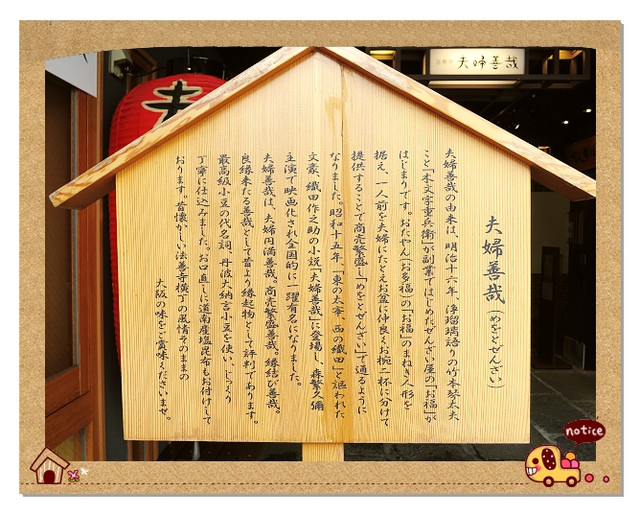 夫婦善哉
夫婦善哉(めをとぜんざい)
夫婦善哉の由来は、明治十六年、浄瑠璃語りの竹本琴太夫
こと「木文字重兵衛」が副業ではじめたぜんざい屋の「お福」が
はじまりです。おたやん(お多福)の「お福」のまねき人形を
据え、一人前を夫婦にたとえお盆に仲良くお椀二杯に分けて
提供することで商売繁盛し「めをとぜんざい」で通るように
なりました。昭和十五年、「東の太宰、西の織田」と謳われた
文豪、織田作之助の小説「夫婦善哉」に登場し、森繁久彌
主演で映画化され全国的に一躍有名になりました。
夫婦善哉は、夫婦円満善哉。商売繁盛善哉。縁結び善哉。
良縁来たる善哉として昔より縁起物として評判であります。
最高級小豆の代名詞、丹波大納言小豆を使い、じっくり
丁寧に仕込みました。お口直しに道南産塩昆布もお付けして
おります。昔懐かしい法善寺横丁の風情そのままの
大阪の味をご賞味くださいませ。
notice